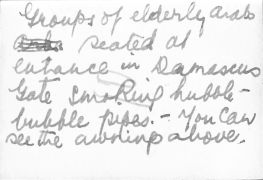 Groups of elderly arabs
seated at
entance in Damascus
Gate smoking hubble-
bubble pipes. - You can
see the awnings above.